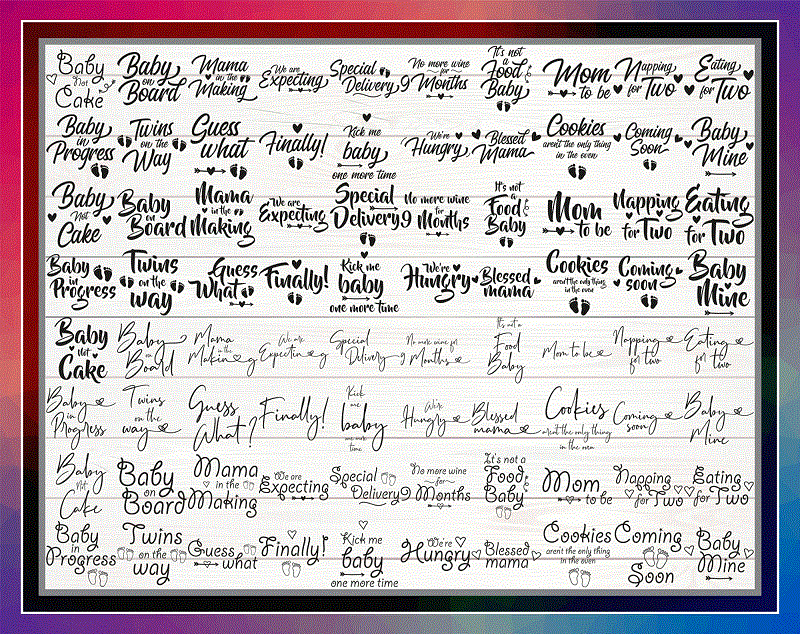 Baby
Not
Cake
Baby
on
Board
Mama
in the
Making
We are
Expecting
Special
Delivery
No more wine
for
9 Months
It's not
a
Food
Baby
Mom
to be
Napping
for Two
Eating
for Two
Baby
in
Progress
Twins
on the
Way
Guess
what
Finally!
Kick me
baby
one more time
We're
Hungry
Blessed
Mama
Cookies
aren't the only thing
in the oven
Coming
Soon
Baby
Mine
Baby
Not
Cake
Baby
on
Board
Mama
in the
Making
We are
Expecting
Special
Delivery
No more wine
for
9 Months
It's not
a
Food
Baby
Mom
to be
Napping
for Two
Eating
for Two
Baby
in
Progress
Twins
on the
way
Guess
What
Finally!
Kick me
baby
one more time
We're
Hungry
Blessed
mama
Cookies
aren't the only thing
in the oven
Coming
soon
Baby
Mine
Baby
not
Cake
Baby
on
Board
Mama
in the
Making
We are
Expecting
Special
Delivery
No more wine for
9 Months
It's not a
Food
Baby
Mom to be
Napping
for two
Eating
for two
Baby
in
Progress
Twins
on the
way
Guess
What?
Finally!
Kick
me
baby
one more
time
We're
Hungry
Blessed
mama
Cookies
aren't the only thing
in the oven
Coming
soon
Baby
Mine
Baby
Not
Cake
Baby
on
Board
Mama
in the
Making
We are
Expecting
Special
Delivery
No more wine
for
9 Months
It's not a
Food
Baby
Mom
to be
Napping
for Two
Eating
for Two
Baby
in
Progress
Twins
on the
way
Guess
what
Finally!
Kick me
baby
one more time
We're
Hungry
Blessed
mama
Cookies
aren't the only thing
in the oven
Coming
Soon
Baby
Mine